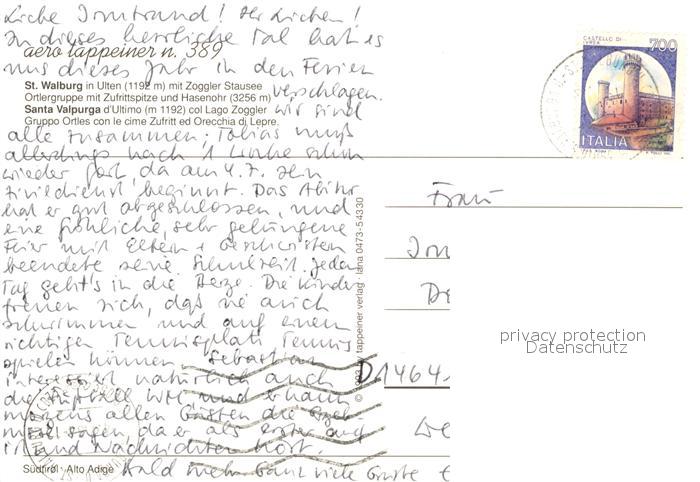 Liebe Irmtraud! Ihr Lieben!
In dieses herrliche Tal hat es
aero tappeiner n. 389
uns dieses Jahr in den Ferien
St. Walburg in Ulten (1192 m) mit Zoggler Stausee
verschlagen.
Ortlergruppe mit Zufrittspitze und Hasenohr (3256 m)
Santa Valpurga d'Ultimo (m 1192) col Lago Zoggler
Wir sind
Gruppo Ortles con le cime Zufritt ed Orecchia di Lepre.
alle zusammen; Tobias muß
allerdings nach 1 Woche schon
wieder fort, da am 4.7. sein
Zivildienst beginnt. Das Abitur
hat er gut abgeschlossen, und
eine fröhliche, sehr gelungene
Feier mit Eltern + Geschwistern
beendete seine Schulzeit. Jeden
Tag geht's in die Berge. Die Kinder
freuen sich, daß sie auch
schwimmen und auf einem
richtigen Tennisplatz Tennis
spielen können. Sebastian
interessiert natürlich auch
die Fußball WM und er kann
morgens allen Gästen die
sagen, da er als erster auf
ist und Nachrichten hört.
Bald mehr Ganz viele Grüße
Südtirol · Alto Adige
tappeiner verlag · lana 0473-54330
CASTELLO DI IVREA
700
ITALIA
Frau
D1464-
privacy protection
Datenschutz